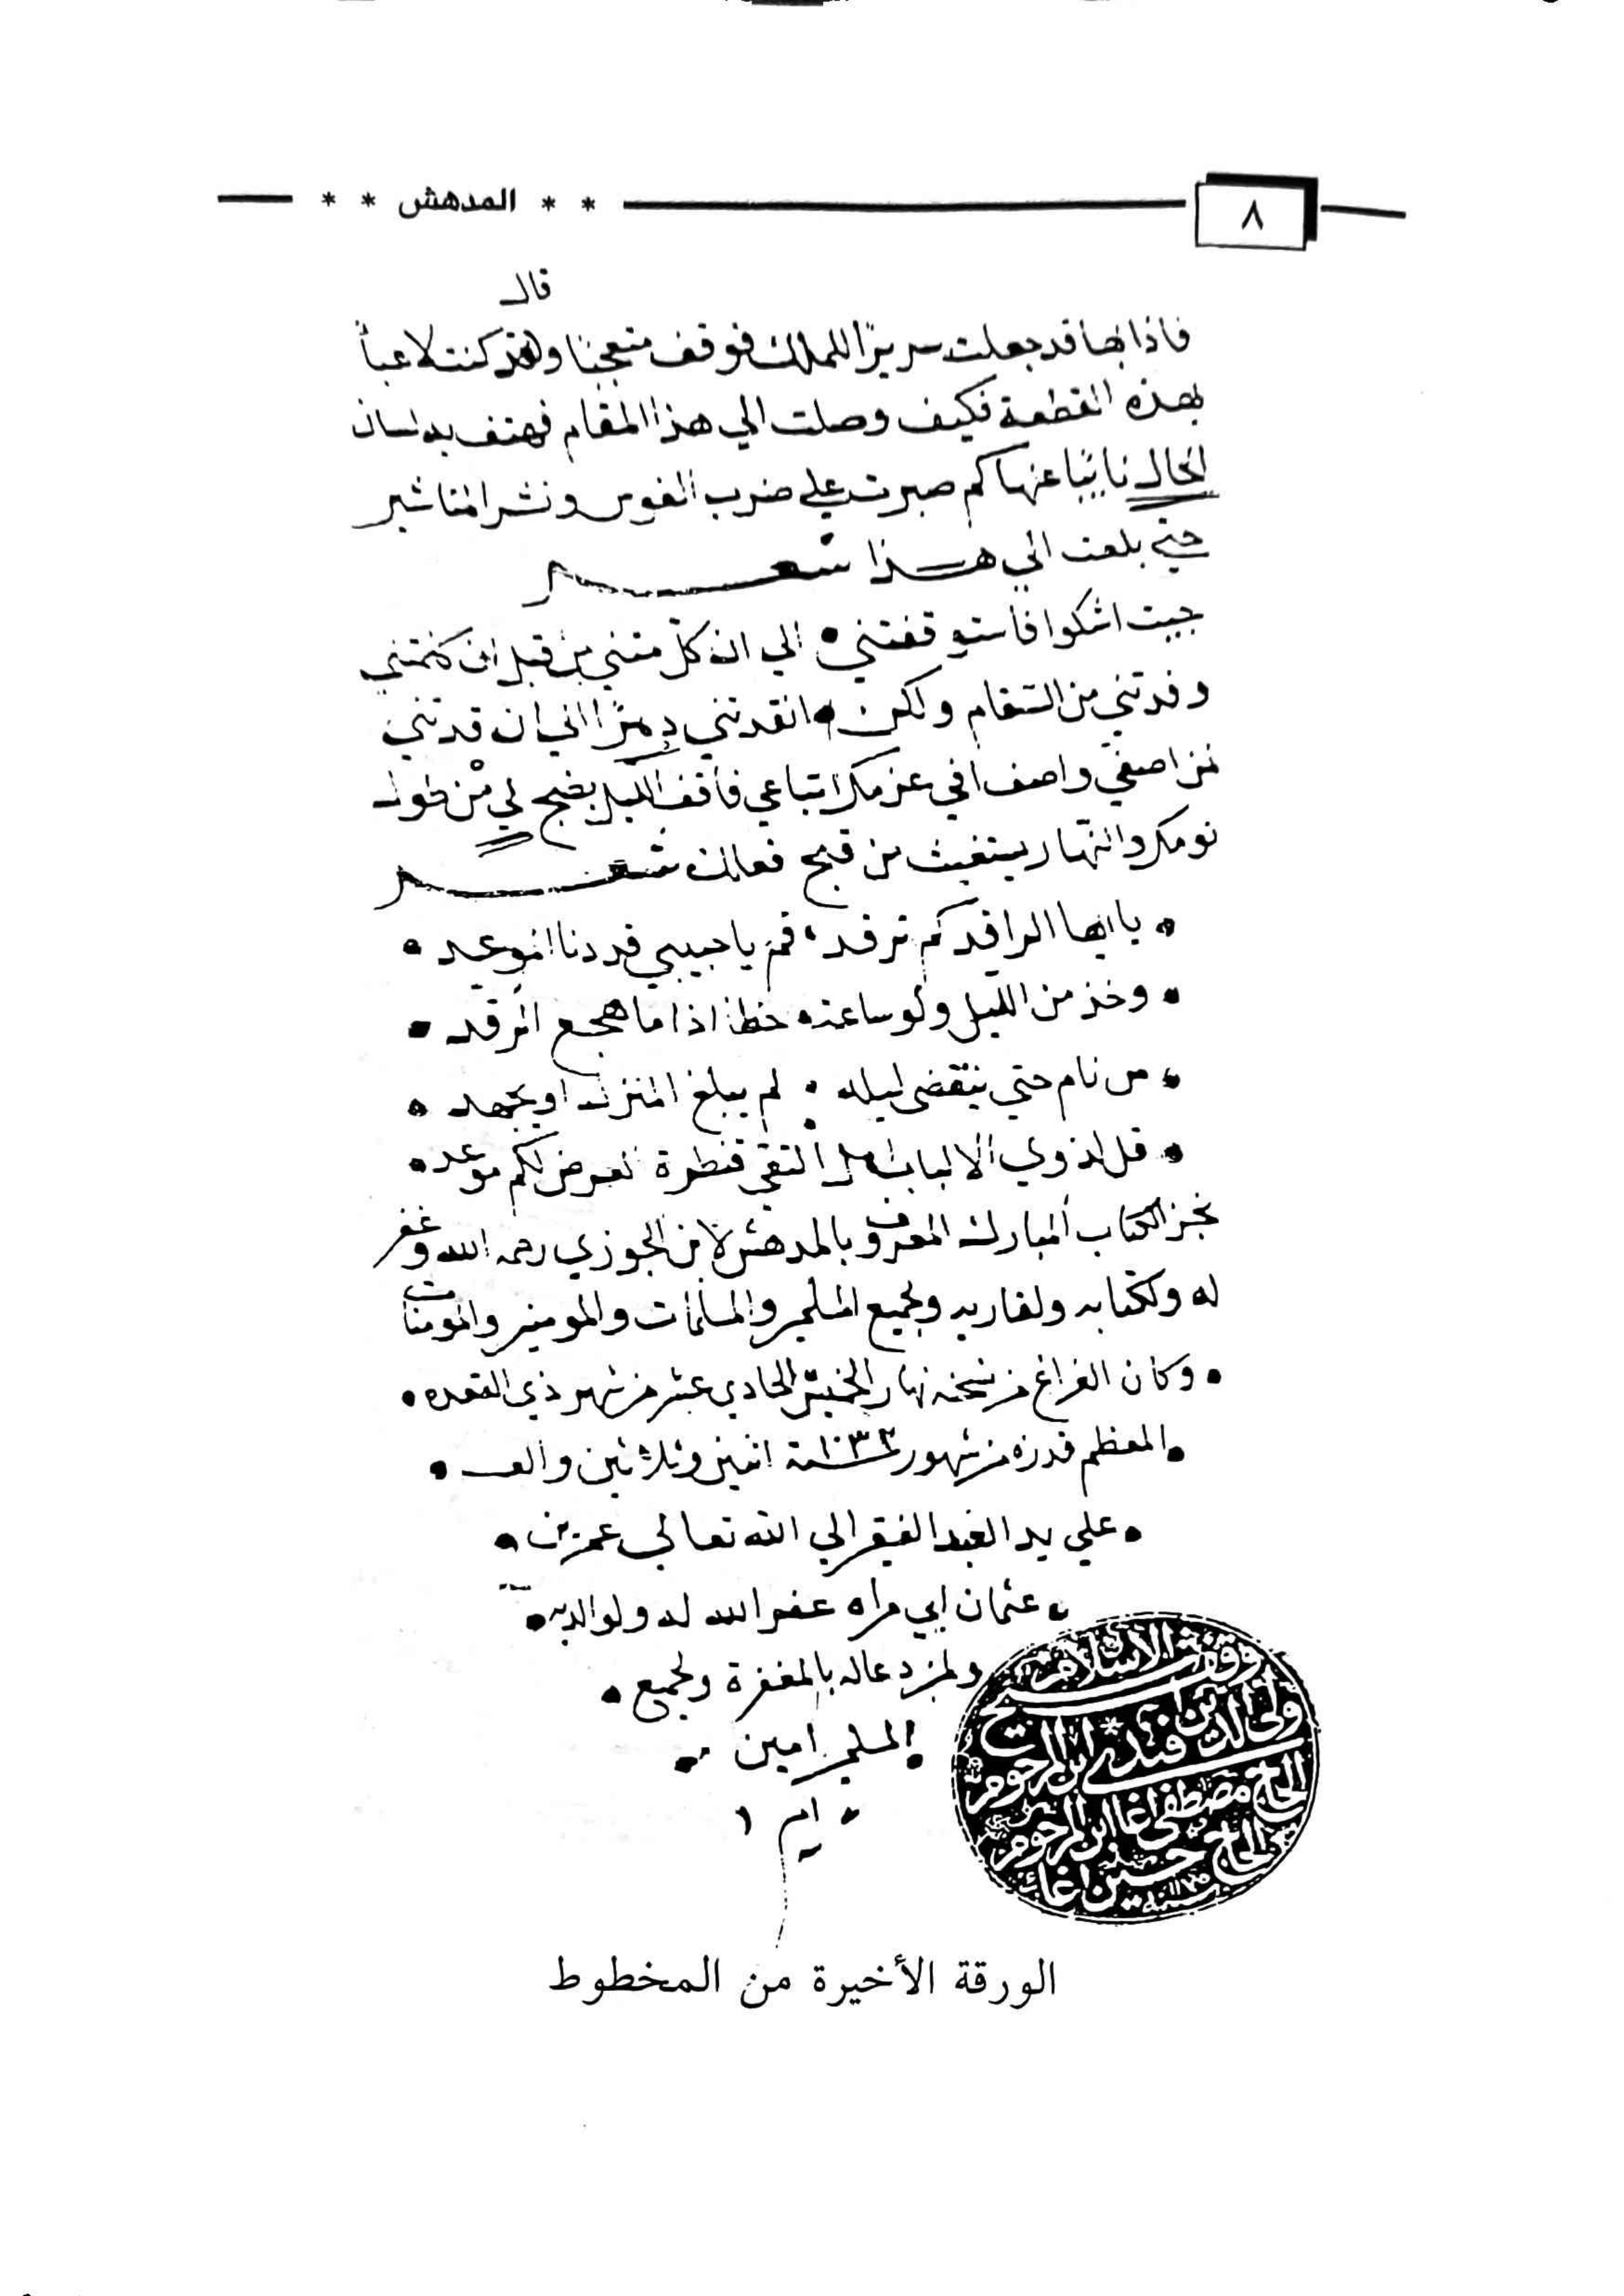 ٨
* * المدهش * *
قال
فاذا بها قد جعلت سريرا للملك فوقف متعجبا و قد كنت لاعبا
بهذه القطعة فكيف وصلت الي هذا المقام فهتف به لسان
الحال نايبا عنها كم صبرت علي ضرب الفوس ونشر المناشير
حتي بلغت الي هذا شعر
جيت اشكوا فاستوقفتني • الي ان من قبل ان
وفدتني من السقام ولكن • انقدتني الي ان فدتني
واصف في اتباعي فاقف الليل يضج لي من طول
نومك والنهار يستغيث من قبح فعالك شعر
• يا ايها الراقد كم ترقد • قم يا حبيبي قد دنا الموعد •
• وخذ من الليل ولو ساعة • حظا اذا ما هجع المرقد •
• من نام حتي ينقضي ليله • لم يبلغ المنزل او يجهد •
• قل لذوي الالباب اهل التقي قنطرة العرض لكم موعد •
نجز الكتاب المبارك المعروف بالمدهش لابن الجوزي رحمه الله وغفر
له ولكتابه ولقاريه ولجميع المسلمين والمسلمات والمومنين والمومنات
• وكان الفراغ من نسخه نهار الخميس الحادي عشر من شهر ذي القعده •
• المعظم قدره من شهور سنة ١٠٣٢ اثنين وثلاثين والف •
• علي يد العبد الفقير الي الله تعالي عمر بن •
• عثمان ابي مراه غفر الله له ولوالديه •
ولمن دعا له بالمغفرة ولجميع •
المسلمين امين •
وقف شيخ الاسلام
ولي الدين افندي ابن المرحوم
الحاج مصطفى اغا ابن المرحوم
الحاج حسين اغا
سنة ١١٧٥
الورقة الأخيرة من المخطوط